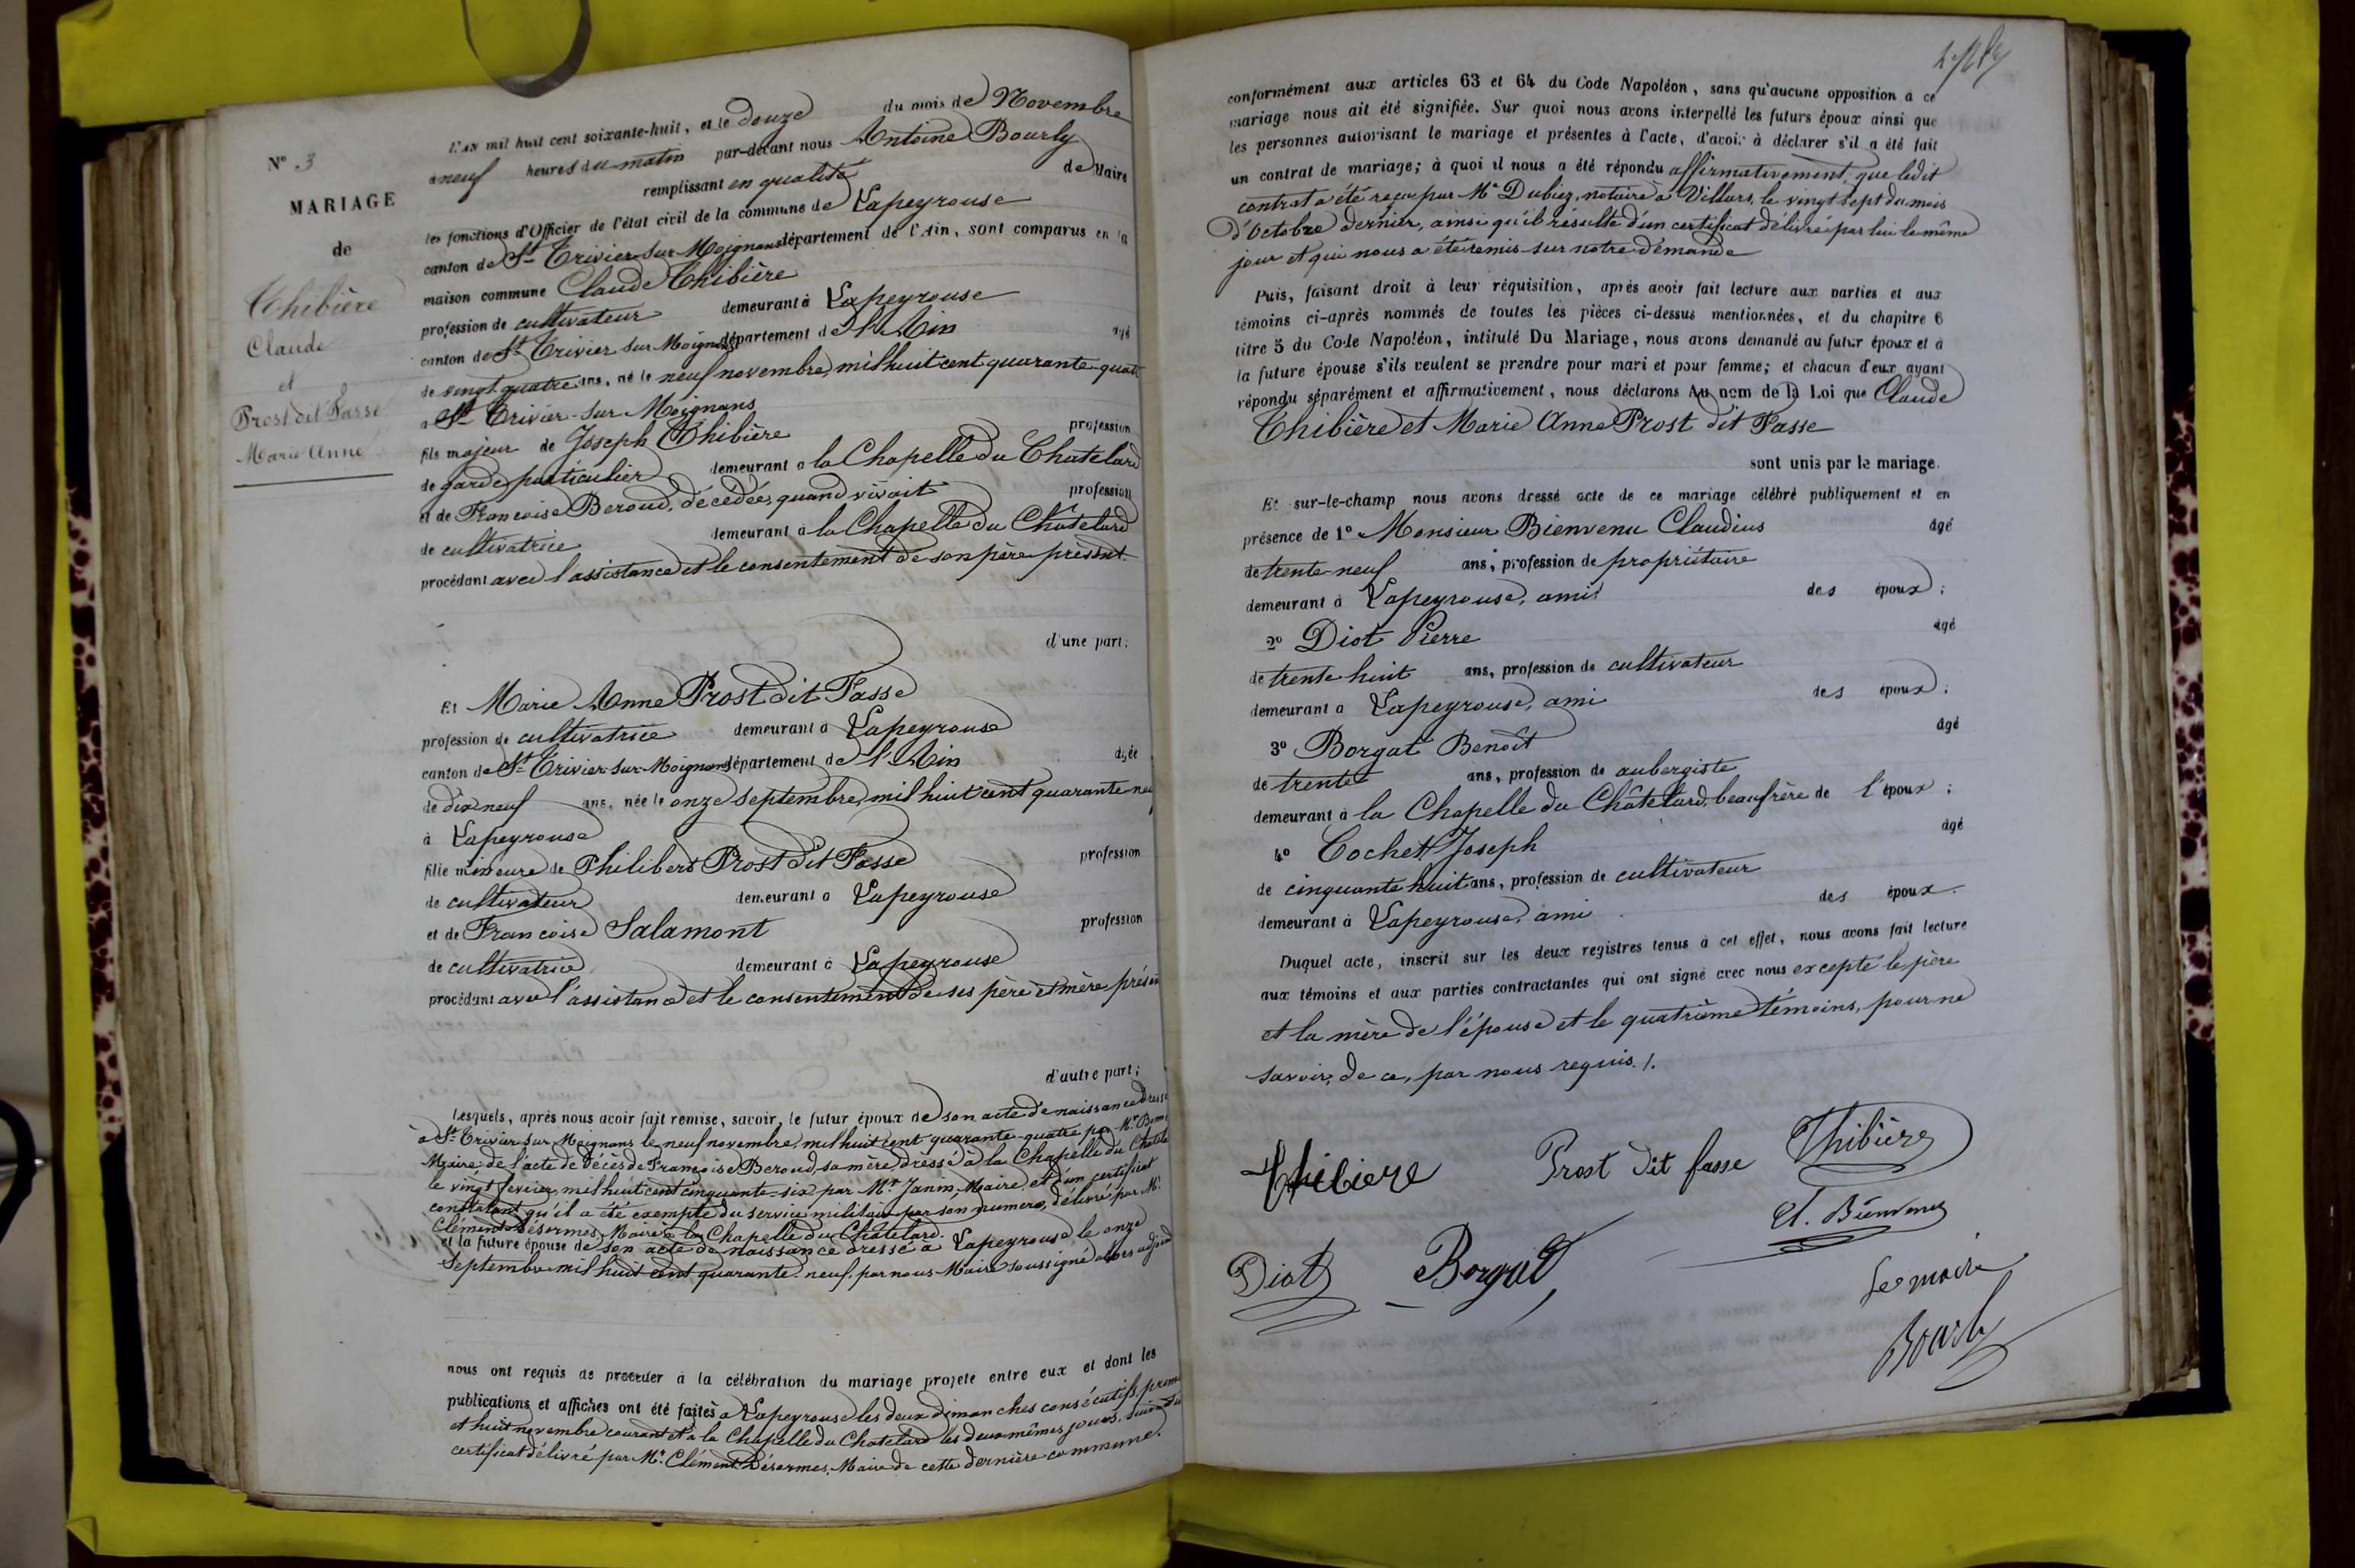 N° 3
MARIAGE
de
Thibière
Claude
et
Prost dit Fasse
Marie Anne
L'AN mil huit cent soixante-huit, et le douze du mois de Novembre
à neuf heures du matin par-devant nous Antoine Bourly
remplissant en qualité de Maire
les fonctions d'Officier de l'état civil de la commune de Lapeyrouse
canton de St Trivier sur Moignans département de l'Ain, sont comparus en la
maison commune Claude Thibière
profession de cultivateur demeurant à Lapeyrouse
canton de St Trivier sur Moignans département de l'Ain âgé
de vingt quatre ans, né le neuf novembre, mil huit cent quarante-quat
à St Trivier-sur Moignans
fils majeur de Joseph Thibière profession
de garde particulier demeurant à la Chapelle du Chatelard
et de Francoise Beroud, décédée, quand vivait profession
de cultivatrice demeurant à la Chapelle du Châtelard
procédant avec l'assistance et le consentement de son père présent
d'une part;
Et Marie Anne Prost dit Fasse
profession de cultivatrice demeurant à Lapeyrouse
canton de St Trivier sur Moignans département de l'Ain âgée
de dix neuf ans, née le onze septembre, mil huit cent quarante neu
à Lapeyrouse
fille mineure de Philibert Prost dit Fasse profession
de cultivateur demeurant à Lapeyrouse
et de Francoise Salamont profession
de cultivatrice demeurant à Lapeyrouse
procédant avec l'assistance et le consentement de ses père et mère présen
d'autre part;
Lesquels, après nous avoir fait remise, savoir, le futur époux de son acte de naissance dressé
à St Trivier sur Moignans le neuf novembre, mil huit cent quarante-quatre par Mr
Maire; de l'acte de décès de Francoise Beroud, sa mère, dressé à la Chapelle du Chatela
le vingt fevrier, mil huit cent cinquante-six par Mr Janin, Maire et d'un certificat
constatant qu'il a été exempté du service militaire par son numero, délivré par Mr
Clément Désormes, Maire à la Chapelle du Châtelard.
et la future épouse de son acte de naissance dressé à Lapeyrouse le onze
Septembre mil huit cent quarante-neuf, par nous Maire soussigné alors adjoint
nous ont requis de procéder à la célébration du mariage projeté entre eux et dont les
publications et affiches ont été faites à Lapeyrouse les deux dimanches consécutifs, prem
et huit novembre courant et à la Chapelle du Chatelard les deux mêmes jours, suivant
certificat délivré par Mr Clément Désormes, Maire de cette dernière commune.
conformément aux articles 63 et 64 du Code Napoléon, sans qu'aucune opposition à ce
mariage nous ait été signifiée. Sur quoi nous avons interpellé les futurs époux ainsi que
les personnes autorisant le mariage et présentes à l'acte, d'avoir à déclarer s'il a été fait
un contrat de mariage; à quoi il nous a été répondu affirmativement que ledit
contrat a été reçu par Me Dubiez, notaire à Villars, le vingt sept du mois
d'Octobre dernier, ainsi qu'il résulte d'un certificat délivré par lui le même
jour et qui nous a été remis sur notre demande
Puis, faisant droit à leur réquisition, après avoir fait lecture aux parties et aux
témoins ci-après nommés de toutes les pièces ci-dessus mentionnées, et du chapitre 6
titre 5 du Code Napoléon, intitulé Du Mariage, nous avons demandé au futur époux et à
la future épouse s'ils veulent se prendre pour mari et pour femme; et chacun d'eux ayant
répondu séparément et affirmativement, nous déclarons Au nom de la Loi que Claude
Thibière et Marie Anne Prost dit Fasse
sont unis par le mariage.
Et sur-le-champ nous avons dressé acte de ce mariage célébré publiquement et en
présence de 1° Monsieur Bienvenu Claudius âgé
de trente-neuf ans, profession de propriétaire
demeurant à Lapeyrouse, ami des époux;
2° Diot Pierre âgé
de trente huit ans, profession de cultivateur
demeurant à Lapeyrouse, ami des époux;
3° Borgat Benoît âgé
de trente ans, profession de aubergiste
demeurant à la Chapelle du Châtelard, beaufrère de l'époux;
4° Cochet Joseph âgé
de cinquante huit ans, profession de cultivateur
demeurant à Lapeyrouse, ami des époux.
Duquel acte, inscrit sur les deux registres tenus à cet effet, nous avons fait lecture
aux témoins et aux parties contractantes qui ont signé avec nous excepté le père
et la mère de l'épouse et le quatrième témoins, pour ne
savoir, de ce, par nous requis./.
Thibiere Prost dit fasse Thibière
Cl. Bienvenu
Diot Borgat
Le maire
Bourly